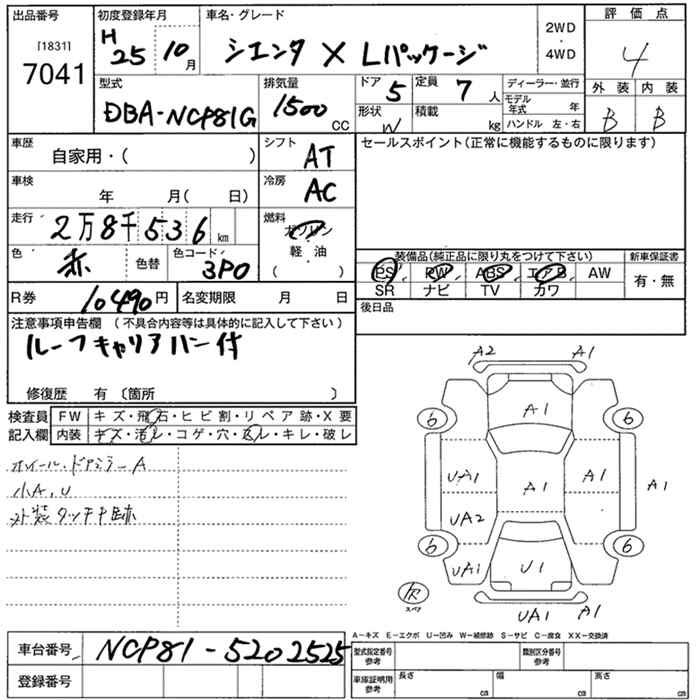 出品番号 [1831] 7041
初度登録年月 H25 10月
車名・グレード シエンタ X Lパッケージ
2WD・4WD
評価点 4
外装 B 内装 B
型式 DBA-NCP81G
排気量 1500 CC
ドア 5 定員 7人
形状 W 積載 kg
ディーラー・並行
モデル年式 年
ハンドル 左・右
車歴 自家用・( )
シフト AT
セールスポイント(正常に機能するものに限ります)
車検 年 月( 日)
冷房 AC
走行 2万8千536 km
燃料 ガソリン 軽・油 ( )
色 赤 色替 色コード 3P0
装備品(純正品に限り丸をつけて下さい) 新車保証書
PS PW ABS エアB AW 有・無
SR ナビ TV カワ
R券 10490円 名変期限 月 日
後日品
注意事項申告欄 (不具合内容等は具体的に記入して下さい)
ルーフキャリアハン付
修復歴 有 〔箇所 〕
検査員記入欄
FW キズ・飛石・ヒビ割・リペア跡・X要
内装 キズ・汚レ・コゲ・穴・スレ・キレ・破レ
ホイール・ドアミラーA
小A,U
外装タッチ跡
A2 A1
A1
6 6
UA1 A1 A1 A1
UA2
6 6
UA1 U1
スペア
UA1 A1
A-キズ E-エクボ U-凹み W-補修跡 S-サビ C-腐食 XX-交換済
車台番号 NCP81-5202525
型式指定番号参考 類別区分番号参考
登録番号
車庫証明用参考 長さ cm 幅 cm 高さ cm